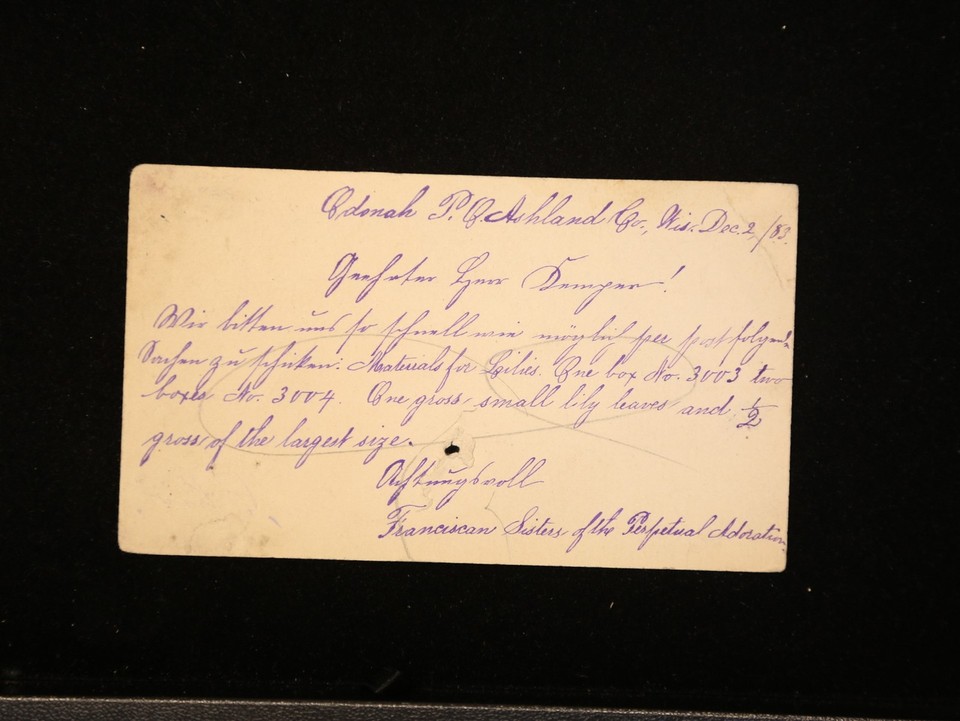 Odonah P.O. Ashland Co., Wis. Dec. 2/83.
Geehrter Herr Kemper!
Wir bitten uns so schnell wie möglich per post folgende
Sachen zu schicken: Materials for Lilies. One box No. 3003 two
boxes No. 3004. One gross, small lily leaves and 1/2
gross, of the largest size.
Achtungsvoll
Franciscan Sisters of the Perpetual Adoration.